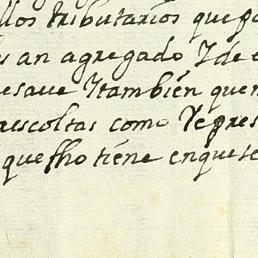 llos tributarios que pa
s an agregado Y de e
esaue Y tambien quen
rescoltas como Repres
que fho tiene en que se